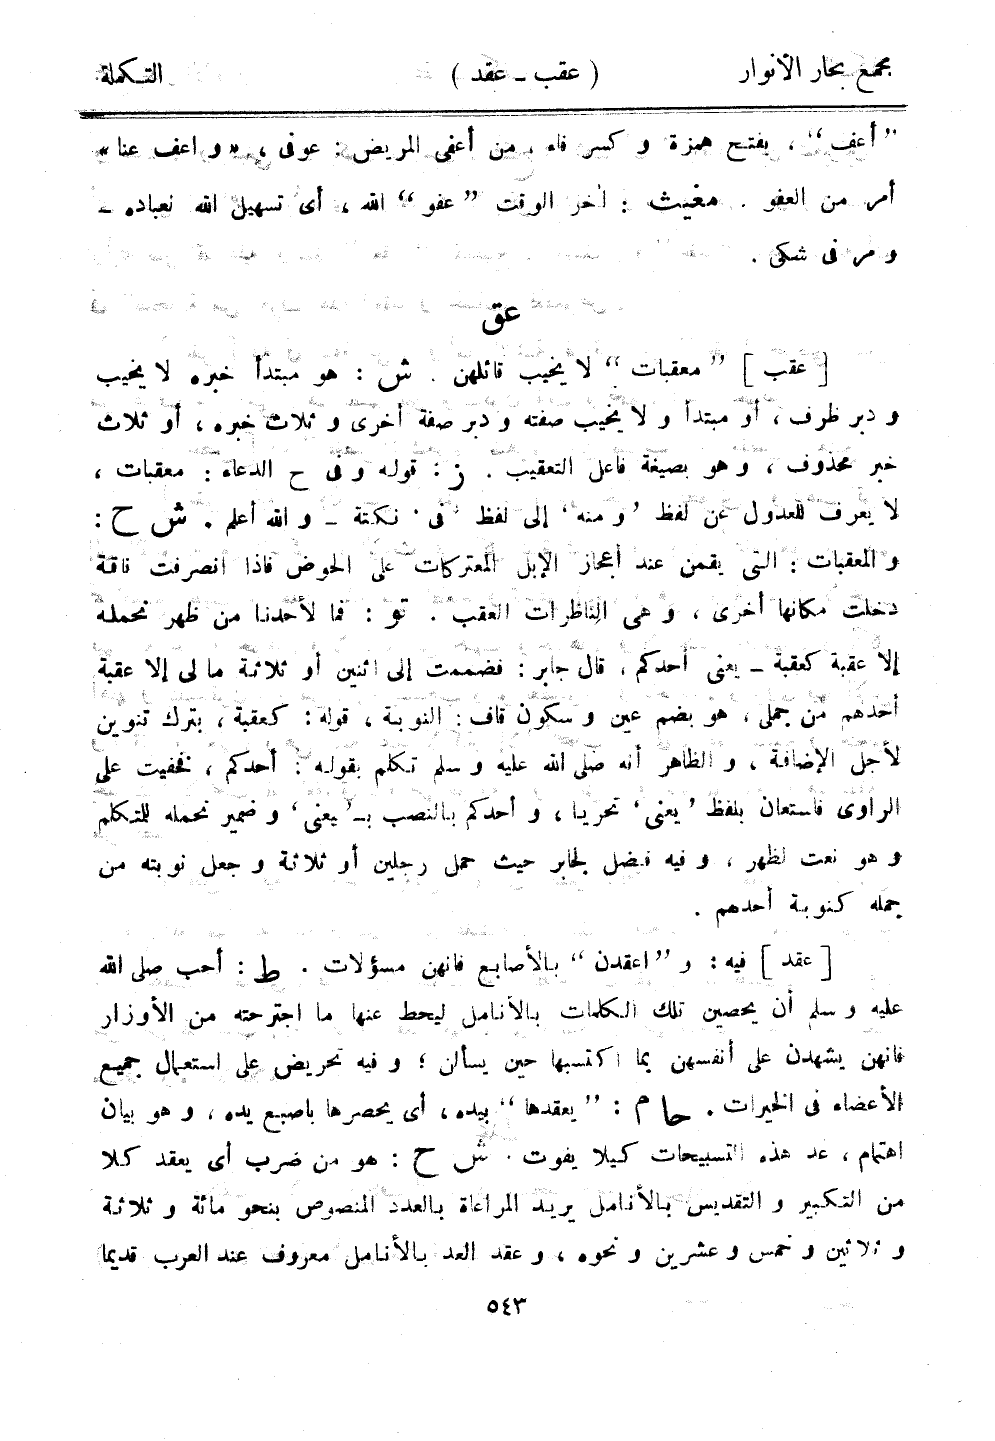 مجمع بحار الأنوار ( عقب ـ عقد ) التكملة
”أعف“ ، بفتح همزة و كسر فاء ، من أعفى المريض : عوفى ، «و اعف عنا»
أمر من العفو . مغيث : آخر الوقت ”عفو“ الله ، أى تسهيل الله لعباده ـ
و مر فى شكى .
عق
[ عقب ] ”معقبات“ لا يخيب قائلهن . ش : هو مبتدأ خبره لا يخيب
و دبر ظرف ، أو مبتدأ و لا يخيب صفته و دبر صفة أخرى و ثلاث خبره ، أو ثلاث
خبر محذوف ، و هو بصيغة فاعل التعقيب . ز : قوله و فى ح الدعاء : معقبات ،
لا يعرف للعدول عن لفظ ’و منه‘ إلى لفظ ’فى‘ نكتة ـ و الله أعلم . ش ح :
و المعقبات : التى يقمن عند أعجاز الإبل المعتركات على الحوض فاذا انصرفت ناقة
دخلت مكانها أخرى ، و هى الناظرات العقب . تو : فما لأحدنا من ظهر نحمله
إلا عقبة كعقبة ـ يعنى أحدكم ، قال جابر : فضممت إلى اثنين أو ثلاثة ما لى إلا عقبة
أحدهم من جملى ، هو بضم عين و سكون قاف : النوبة ، قوله : كعقبة ، بترك تنوين
لأجل الإضافة ، و الظاهر أنه صلى الله عليه و سلم تكلم بقوله : أحدكم ، فخفيت على
الراوى فاستعان بلفظ ’يعنى‘ تحريا ، و أحدكم بالنصب بـ’يعنى‘ و ضمير نحمله للتكلم
و هو نعت لظهر ، و فيه فضل لجابر حيث حمل رجلين أو ثلاثة و جعل نوبته من
جمله كنوبة أحدهم .
[ عقد ] فيه : و ”اعقدن“ بالأصابع فانهن مسؤلات . ط : أحب صلى الله
عليه و سلم أن يحصين تلك الكلمات بالأنامل ليحط عنها ما اجترحته من الأوزار
فانهن يشهدن على أنفسهن بما اكتسبها حين يسألن ؛ و فيه تحريض على استعمال جميع
الأعضاء فى الخيرات . حا م : ”يعقدها“ بيده ، أى يحصرها باصبع يده ، و هو بيان
اهتمام ، عد هذه التسبيحات كيلا يفوت . ش ح : هو من ضرب أى يعقد كلا
من التكبير و التقديس بالأنامل يريد المراعاة بالعدد المنصوص بنحو مائة و ثلاثة
و ثلاثين و خمس و عشرين و نحوه ، و عقد العد بالأنامل معروف عند العرب قديما
٥٤٣